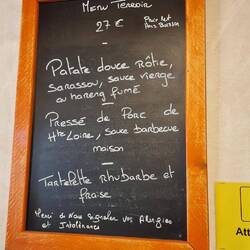 Menu Terroir
27 €
Prix Net
Hors Boisson
Patate douce Rôtie,
Sarassou, sauce vierge
au hareng fumé
Pressé de Porc de
Hte Loire, sauce barbecue
maison
Tartelette rhubarbe et
fraise
Merci de Nous signaler vos Allergies
et Intolérances
Att